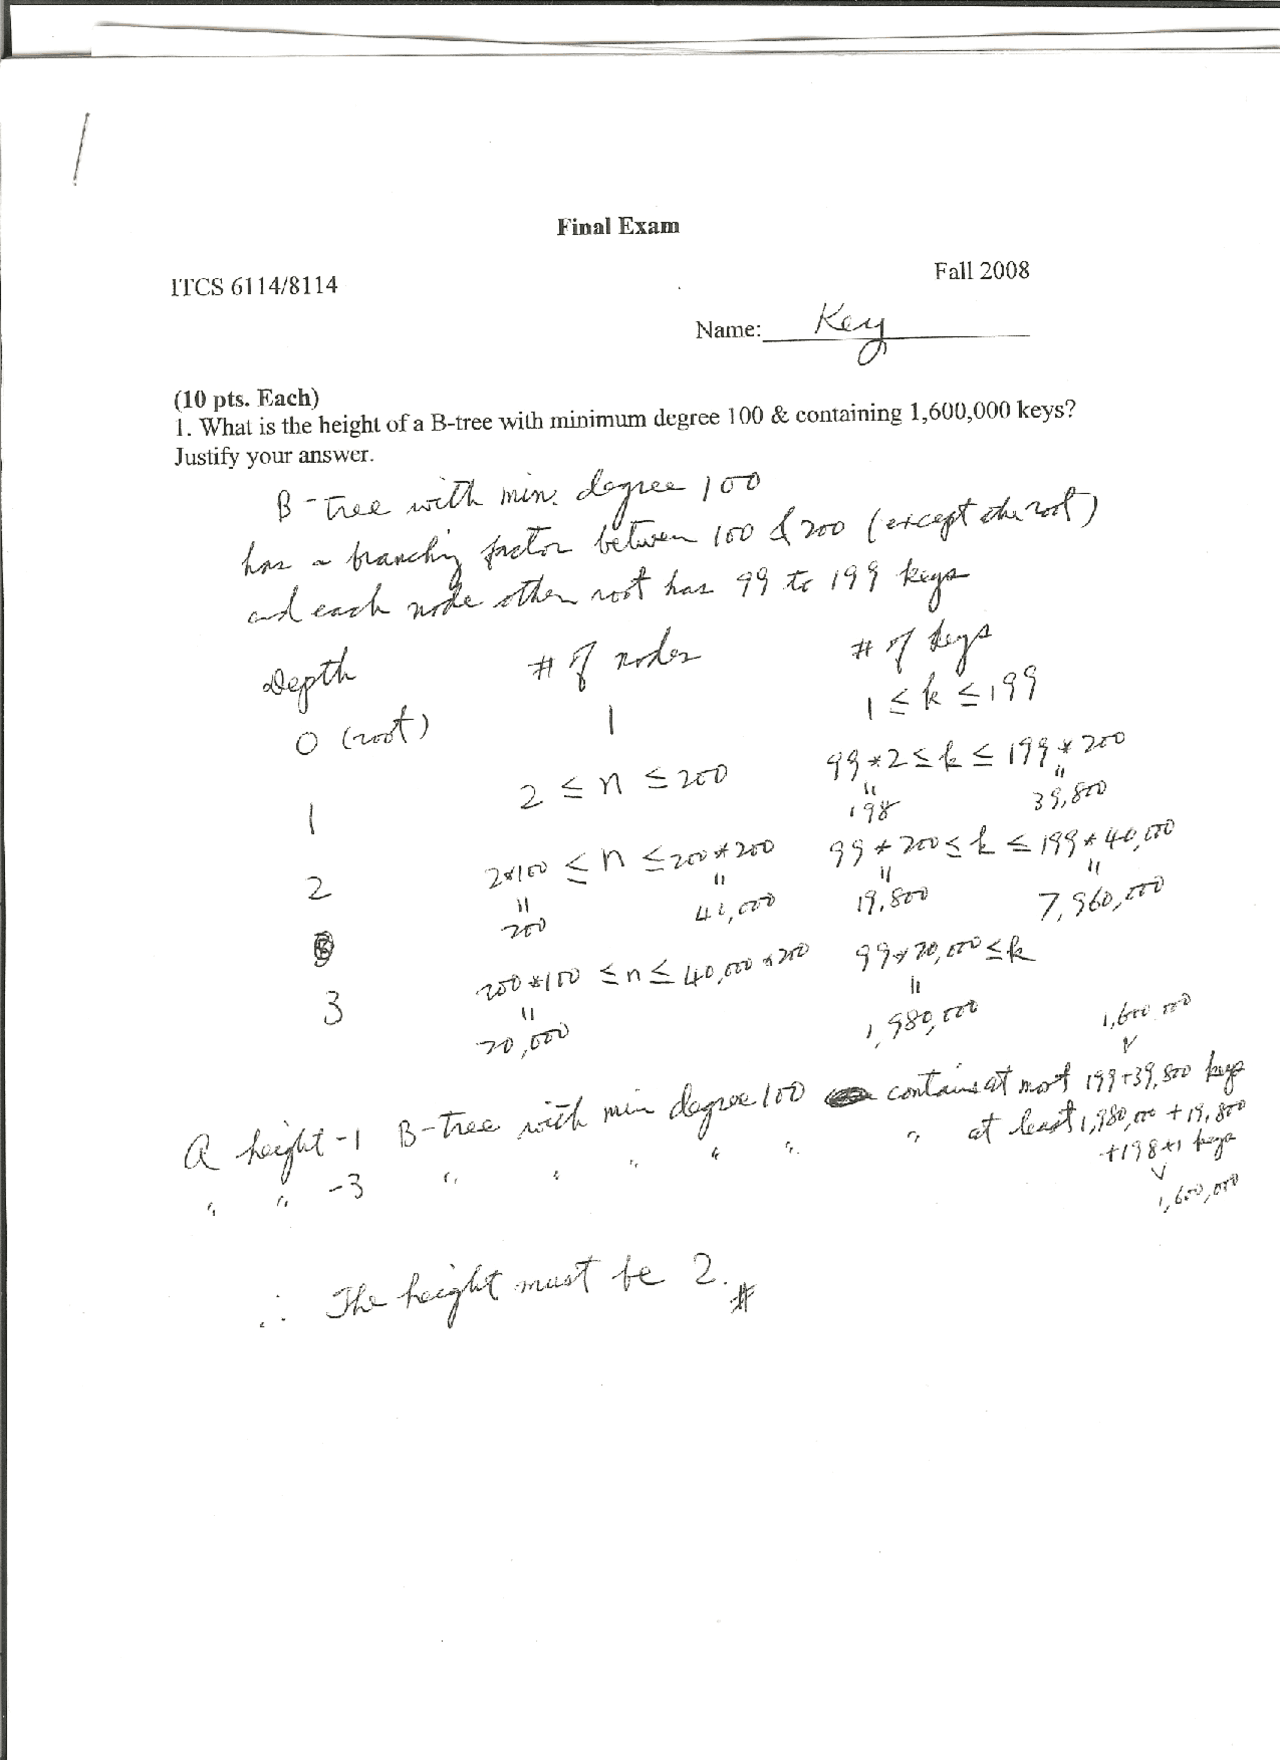 Final Exam
ITCS 6114/8114
Fall 2008
Name: Key
(10 pts. Each)
1. What is the height of a B-tree with minimum degree 100 & containing 1,600,000 keys?
Justify your answer.
B-tree with min. degree 100
has a branching factor between 100 & 200 (except the root)
and each node other root has 99 to 199 keys
Depth # of nodes # of keys
0 (root) 1 1 ≤ k ≤ 199
1 2 ≤ n ≤ 200 99*2 ≤ k ≤ 199*200
" "
198 39,800
2 2*100 ≤ n ≤ 200*200 99*200 ≤ k ≤ 199*40,000
" " " "
200 40,000 19,800 7,960,000
3 200*100 ≤ n ≤ 40,000*200 99*20,000 ≤ k
" "
20,000 1,980,000
1,600,000
V
A height-1 B-tree with min degree 100 contains at most 199+39,800 keys
" " -3 " " " " " " at least 1,980,000 + 19,800
+198+1 keys
V
1,600,000
∴ The height must be 2. #